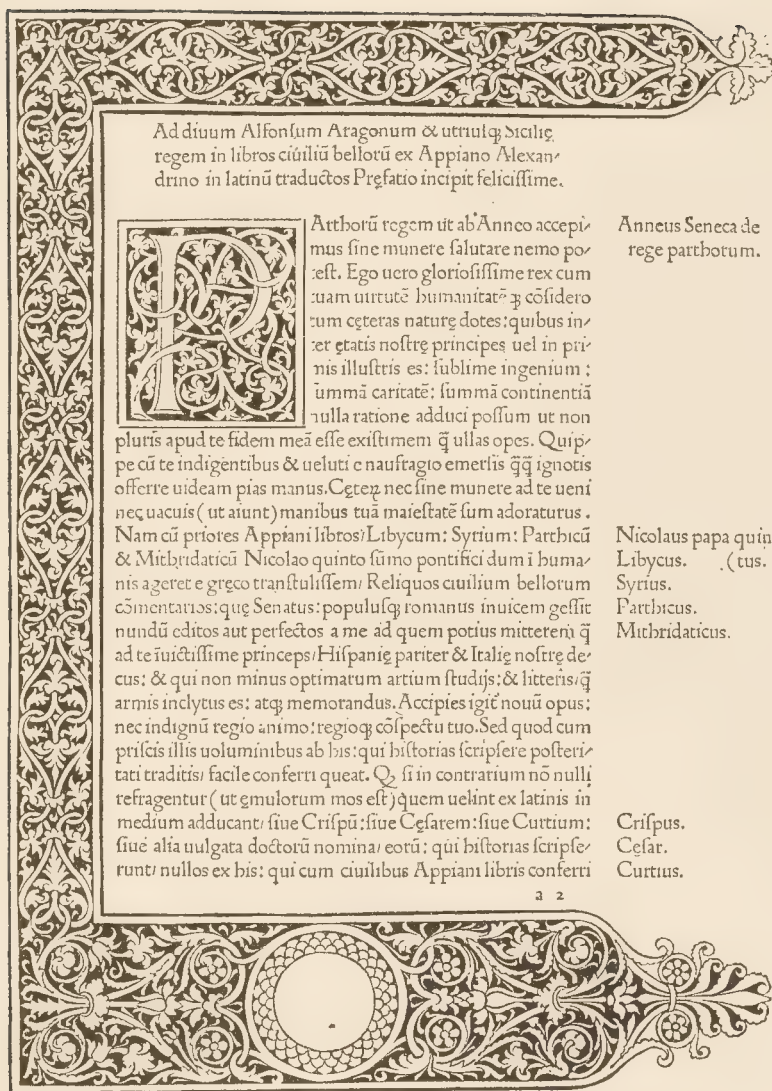 Ad diuum Alfonſum Aragonum & utriuſqꝫ Sicilię
regem in libros ciuiliū bellorū ex Appiano Alexan-
drino in latinū traductos Pręfatio incipit feliciſſime.
PArthorū regem ut ab Anneo accepi-
mus ſine munere ſalutare nemo po-
teſt. Ego uero glorioſiſſime rex cum
tuam uirtutē humanitatēqꝫ cōſidero
tum cęteras naturę dotes: quibus in-
ter ętatis noſtrę principes uel in pri-
mis illuſtris es: ſublime ingenium:
ſummā caritatē: ſummā continentiā
nulla ratione adduci poſſum ut non
pluris apud te fidem meā eſſe exiſtimem q̄ ullas opes. Quip-
pe cū te indigentibus & ueluti e naufragio emerſis q̄q̄ ignotis
offerre uideam pias manus. Cęteꝝ nec ſine munere ad te ueni
nec uacuis (ut aiunt) manibus tuā maieſtatē ſum adoraturus.
Nam cū priores Appiani libros/ Libycum: Syrium: Parthicū
& Mithridaticū Nicolao quinto ſūmo pontifici dum ī huma-
nis ageret e gręco tranſtuliſſem/ Reliquos ciuilium bellorum
cōmentarios: quę Senatus: populuſqꝫ romanus inuicem geſſit
nundū editos aut perfectos a me ad quem potius mitterem q̄
ad te īuictiſſime princeps/ Hiſpanię pariter & Italię noſtrę de-
cus: & qui non minus optimarum artium ſtudijs: & litteris/ q̄
armis inclytus es: atqꝫ memorandus. Accipies igit̄ nouū opus:
nec indignū regio animo: regioqꝫ cōſpectu tuo. Sed quod cum
priſcis illis uoluminibus ab his: qui hiſtorias ſcripſere poſteri-
tati traditis/ facile conferri queat. Qꝫ ſi in contrarium nō nulli
refragentur (ut ęmulorum mos eſt) quem uelint ex latinis in
medium adducant/ ſiue Criſpū: ſiue Cęſarem: ſiue Curtium:
ſiue alia uulgata doctorū nomina/ eorū: qui hiſtorias ſcripſe-
runt/ nullos ex his: qui cum ciuilibus Appiani libris conferri
a 2
Anneus Seneca de
rege parthorum.
Nicolaus papa quin
Libycus. (tus.
Syrius.
Parthicus.
Mithridaticus.
Criſpus.
Ceſar.
Curtius.